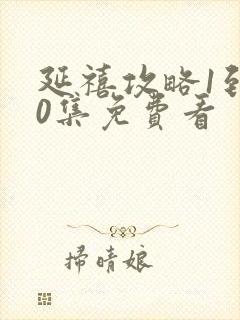 延禧攻略1到
0集免費看
掃晴娘